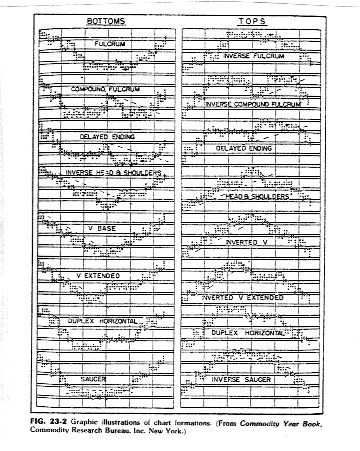 BOTTOMS
FULCRUM
COMPOUND FULCRUM
DELAYED ENDING
INVERSE HEAD & SHOULDERS
V BASE
V EXTENDED
DUPLEX HORIZONTAL
SAUCER
TOPS
INVERSE FULCRUM
INVERSE COMPOUND FULCRUM
DELAYED ENDING
HEAD & SHOULDERS
INVERTED V
INVERTED V EXTENDED
DUPLEX HORIZONTAL
INVERSE SAUCER
FIG. 23-2 Graphic illustrations of chart formations. (From Commodity Year Book,
Commodity Research Bureau, Inc. New York.)